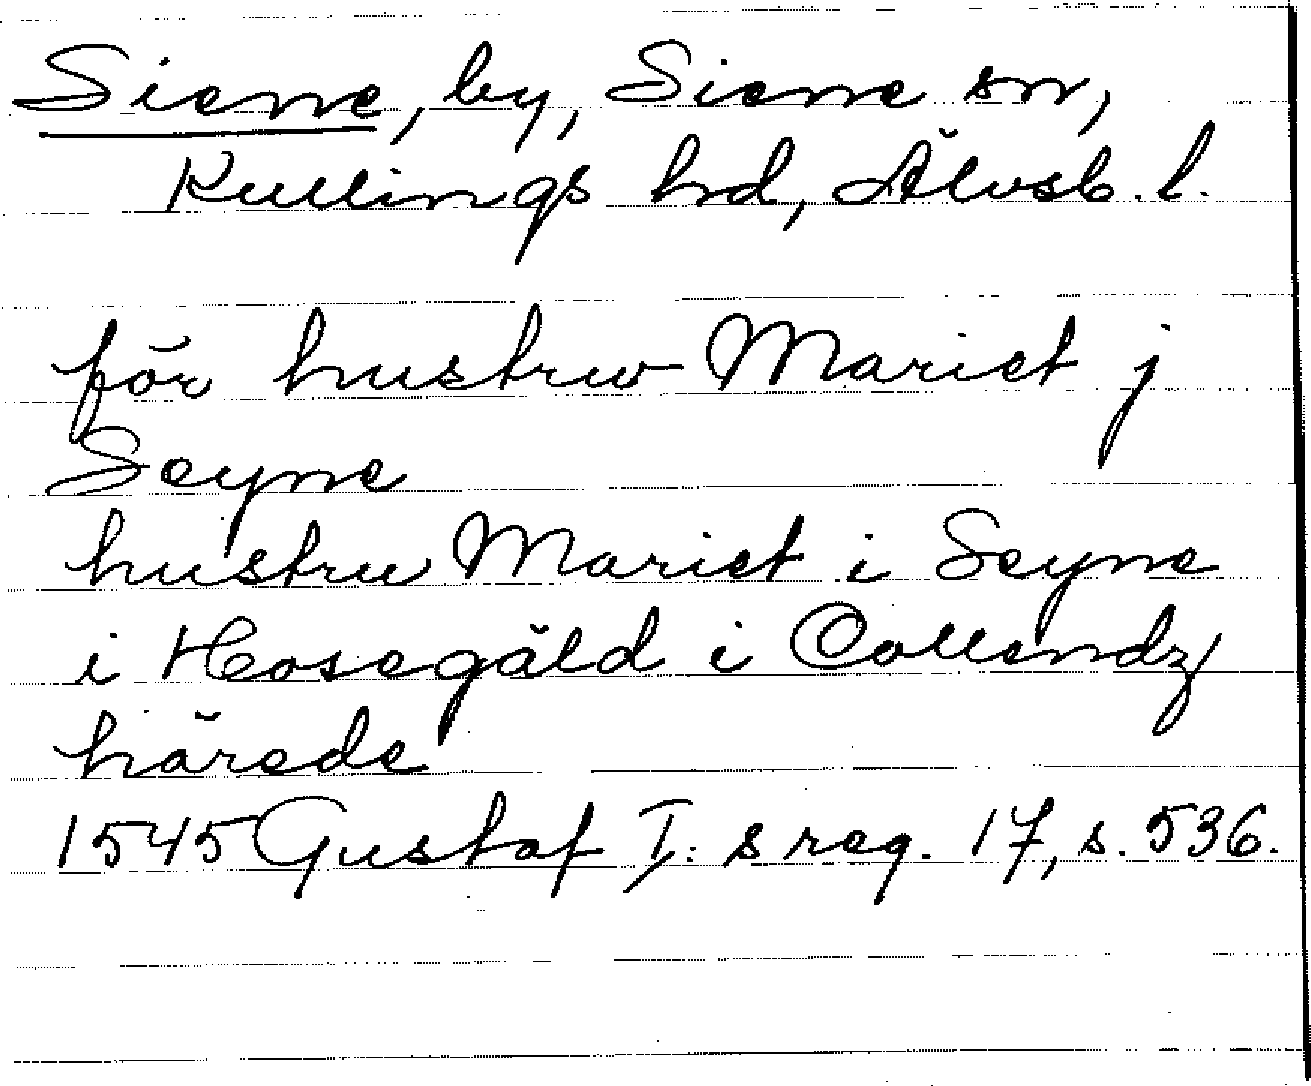 Siene, by, Siene sn,
Kullings hd, Älvsb. l.
för hustrw Mariet j
Seyne
hustru Mariet i Seyne
i Hosegäld i Collendz
härede
1545 Gustaf I: s reg. 17, s. 536.